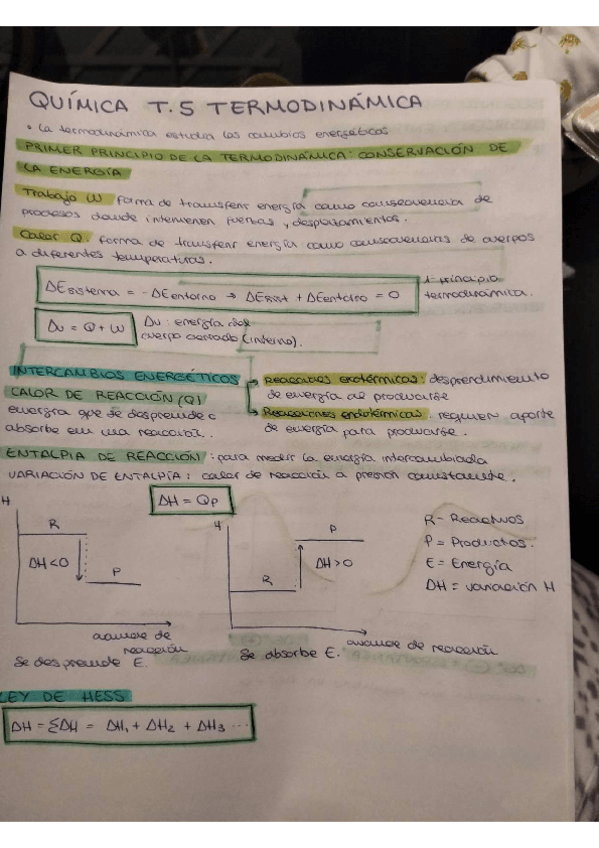 QUÍMICA T.5 TERMODINÁMICA
• La termodinámica estudia los cambios energéticos
PRIMER PRINCIPIO DE LA TERMODINÁMICA: CONSERVACIÓN DE
LA ENERGÍA
Trabajo W forma de transferir energía como consecuencia de
procesos donde intervienen fuerzas y desplazamientos.
Calor Q. forma de transferir energía como consecuencias de cuerpos
a diferentes temperaturas.
ΔEsistema = -ΔEentorno → ΔEsist + ΔEentorno = 0
1º principio
termodinámica.
ΔU = Q + W
ΔU: energía del
cuerpo cerrado (interno).
INTERCAMBIOS ENERGÉTICOS
→ Reacciones exotérmicas: desprendimiento
de energía al producirse
CALOR DE REACCIÓN (Q)
energía que se desprende o
absorbe en una reacción.
→ Reacciones endotérmicas. requieren aporte
de energía para producirse.
ENTALPIA DE REACCIÓN: para medir la energía intercambiada
VARIACIÓN DE ENTALPÍA: calor de reacción a presión constante.
ΔH = Qp
H
R
ΔH<0
P
avance de
reacción
Se desprende E.
H
P
ΔH>0
R
avance de reacción
Se absorbe E.
R- Reactivos
P = Productos.
E = Energía
ΔH = variación H
LEY DE HESS
ΔH = ΣΔH = ΔH₁ + ΔH₂ + ΔH₃ ...